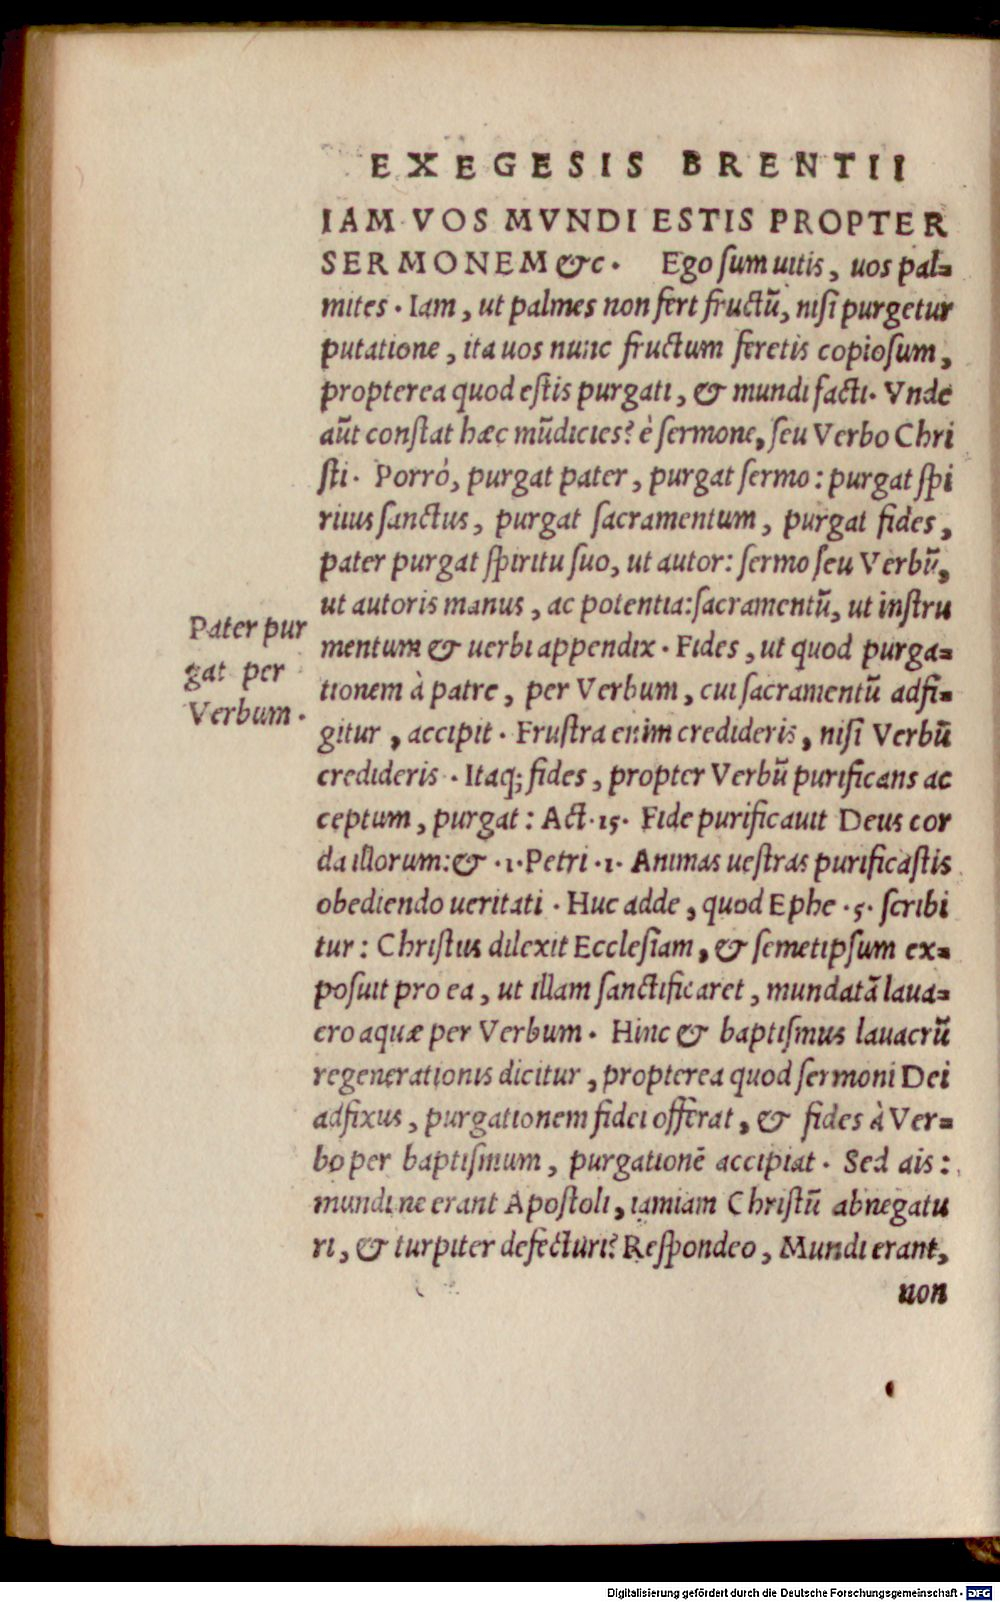 EXEGESIS BRENTII
IAM VOS MVNDI ESTIS PROPTER
SERMONEM &c. Ego sum uitis, uos pal=
mites. Iam, ut palmes non fert fructū, nisi purgetur
putatione, ita uos nunc fructum feretis copiosum,
propterea quod estis purgati, & mundi facti. Vnde
aūt constat hæc mūdicies? è sermone, seu Verbo Chri
sti. Porrò, purgat pater, purgat sermo: purgat spi
ritus sanctus, purgat sacramentum, purgat fides,
pater purgat spiritu suo, ut autor: sermo seu Verbū,
ut autoris manus, ac potentia: sacramentū, ut instru
Pater pur
gat per
Verbum.
mentum & uerbi appendix. Fides, ut quod purga=
tionem à patre, per Verbum, cui sacramentū adfi=
gitur, accipit. Frustra enim credideris, nisi Verbū
credideris. Itaq; fides, propter Verbū purificans ac
ceptum, purgat: Act. 15. Fide purificauit Deus cor
da illorum: & .1. Petri .1. Animas uestras purificastis
obediendo ueritati. Huc adde, quod Ephe .5. scribi
tur: Christus dilexit Ecclesiam, & semetipsum ex=
posuit pro ea, ut illam sanctificaret, mundatā laua=
ero aquæ per Verbum. Hinc & baptismus lauacrū
regenerationis dicitur, propterea quod sermoni Dei
adfixus, purgationem fidei offerat, & fides à Ver=
bo per baptismum, purgationē accipiat. Sed ais:
mundi ne erant Apostoli, iamiam Christū abnegatu
ri, & turpiter defecturi? Respondeo, Mundi erant,
non
Digitalisierung gefördert durch die Deutsche Forschungsgemeinschaft - DFG